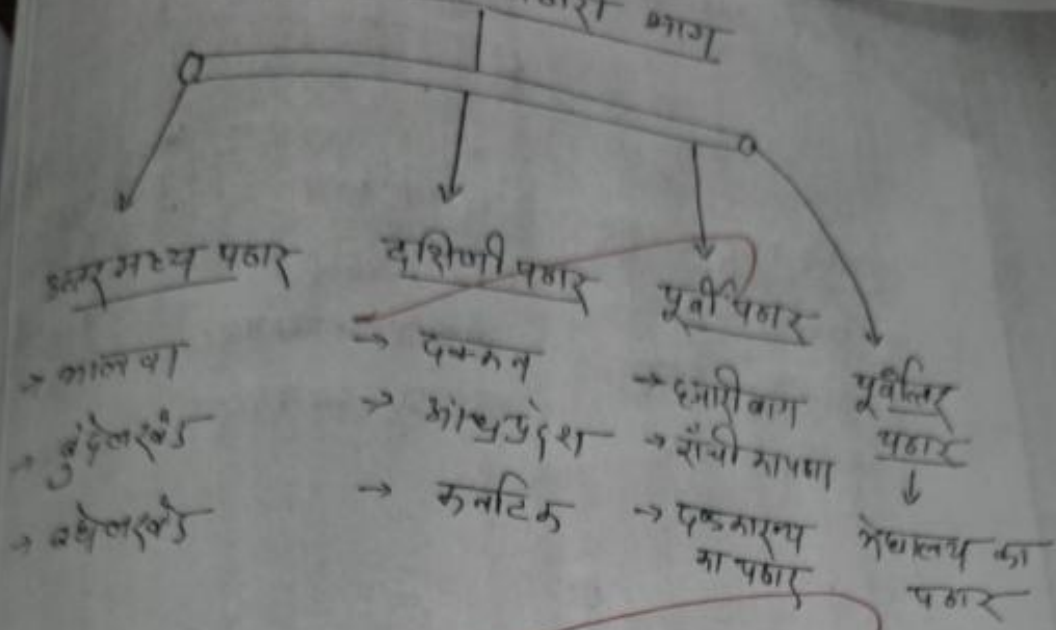 भाग
उत्तर मध्य पठार
→ मालवा
→ बुंदेलखंड
→ बघेलखंड
दक्षिणी पठार
→ दक्कन
→ आंध्रप्रदेश
→ कर्नाटक
पूर्वी पठार
→ हजारीबाग
→ राँची का पठार
→ दण्डकारन्य
का पठार
पूर्वोत्तर
पठार
↓
मेघालय का
पठार